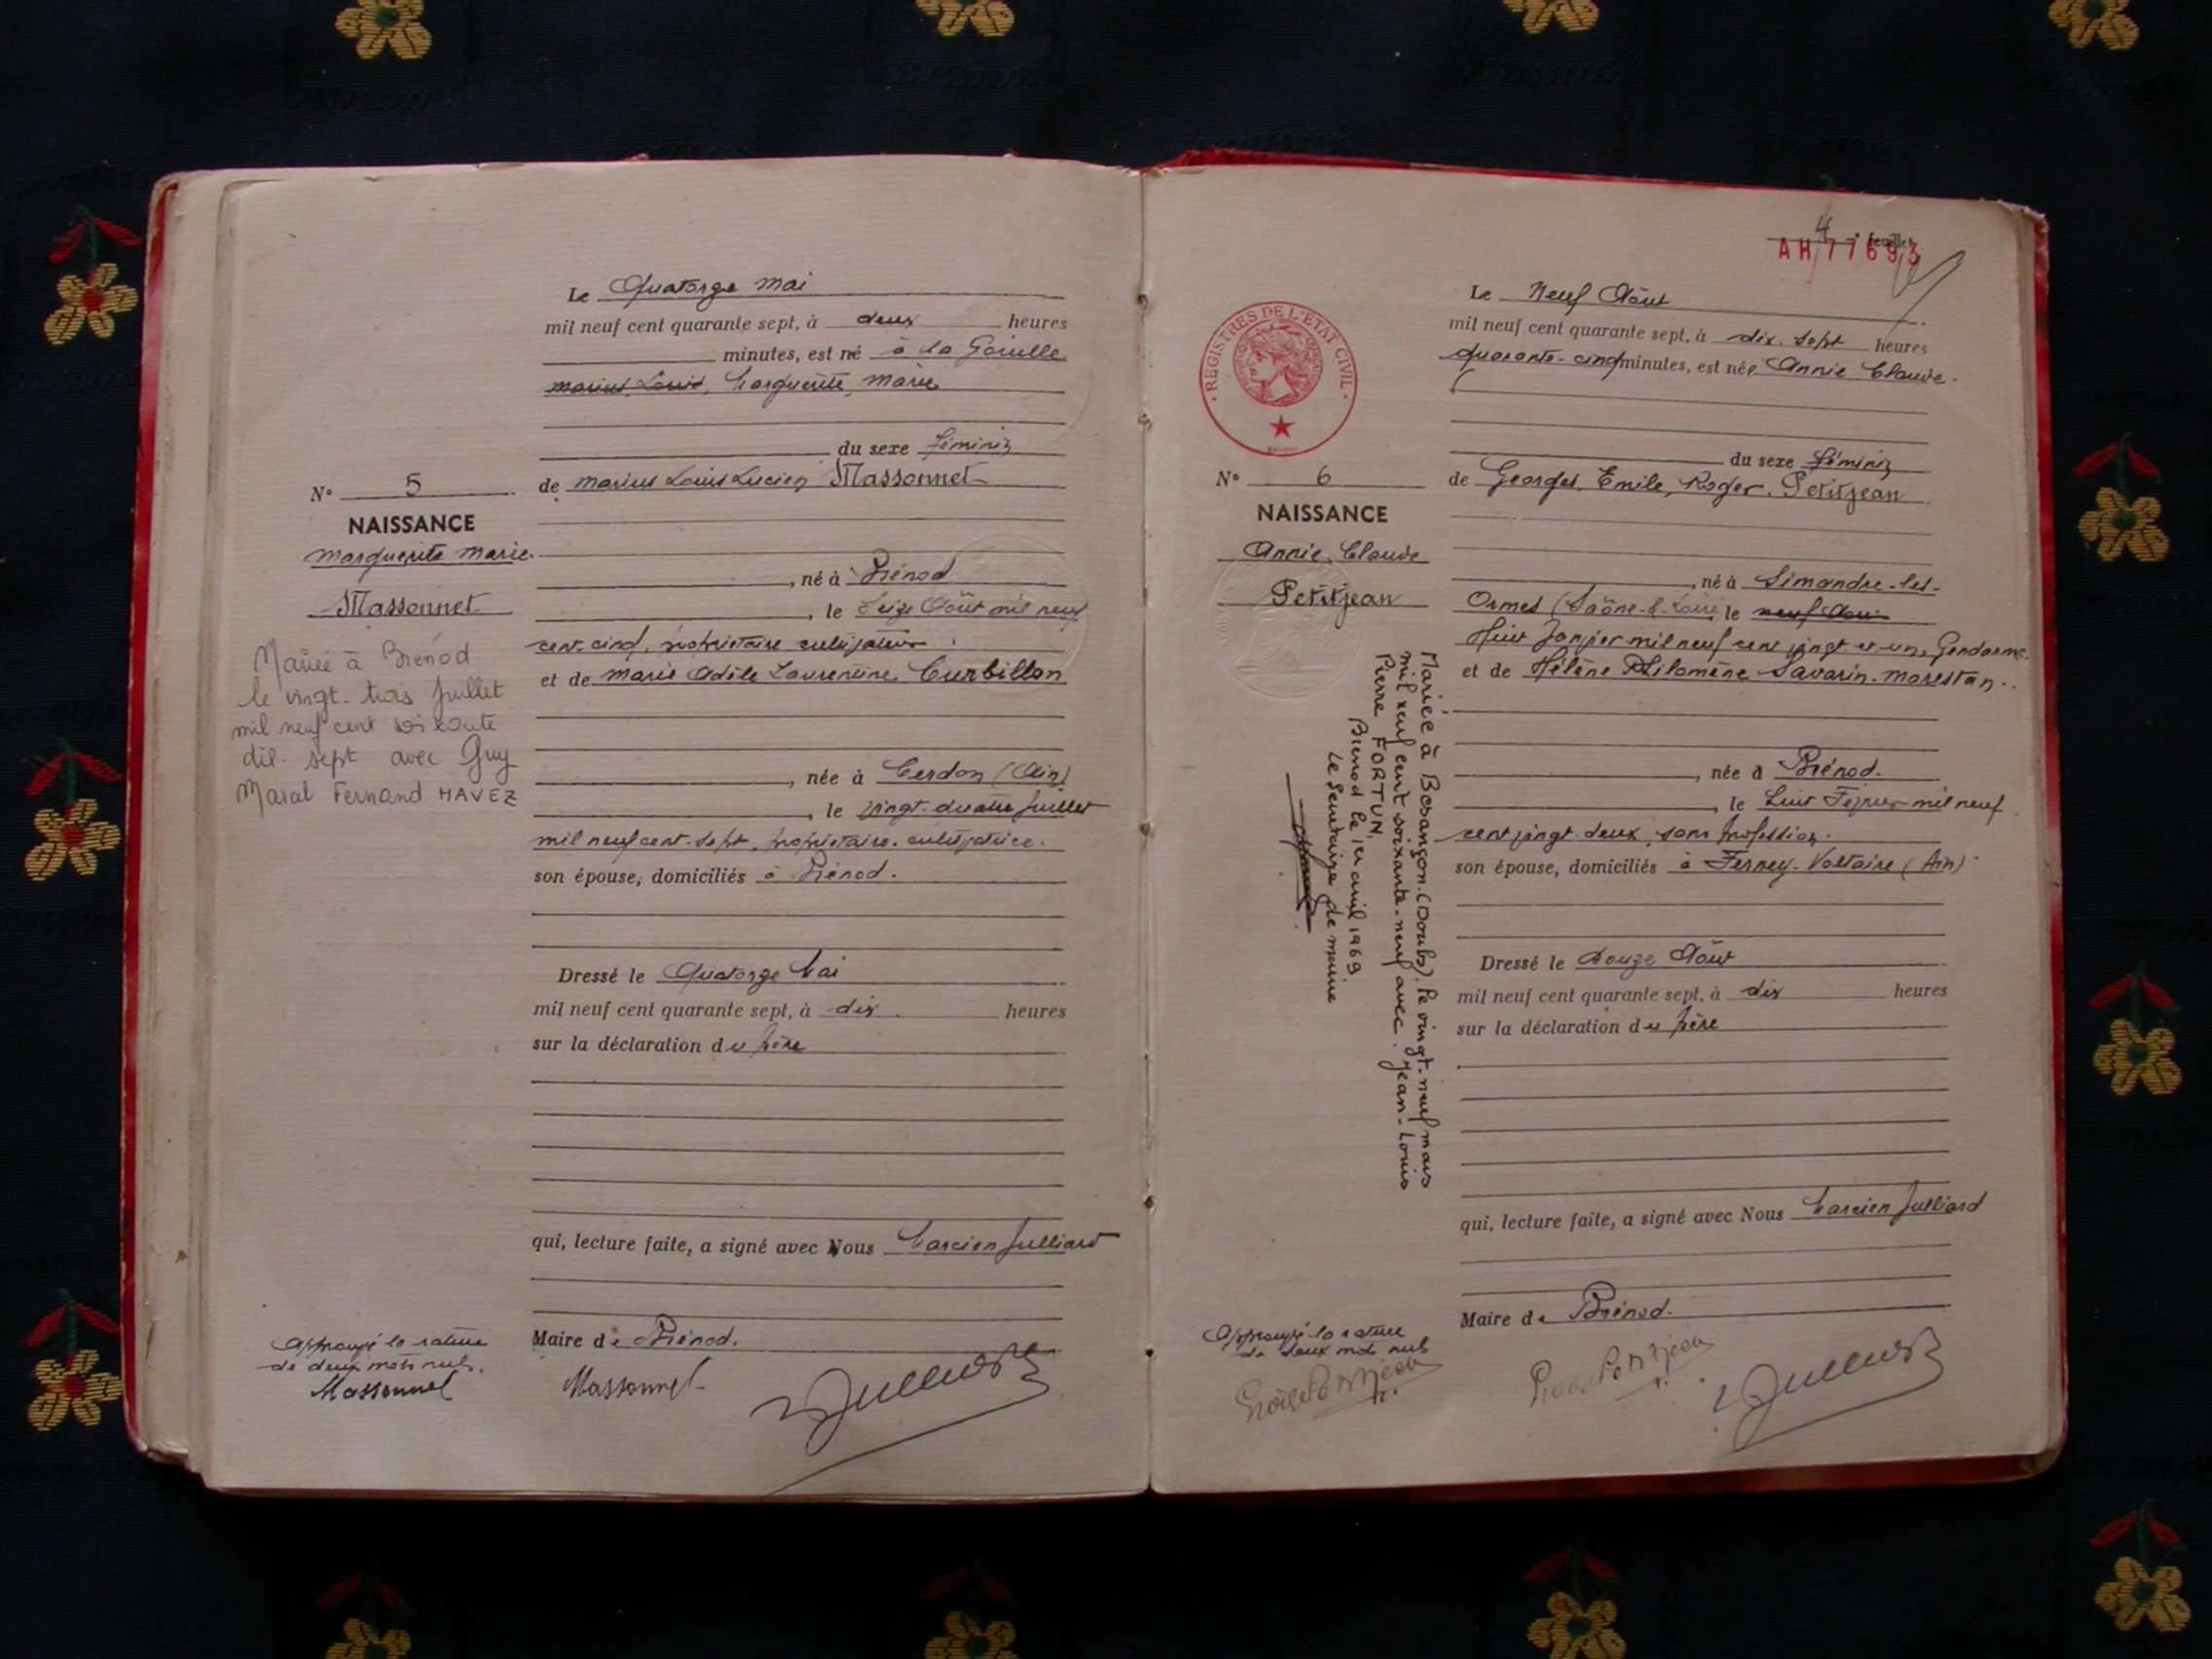 Le Quatorze Mai
mil neuf cent quarante sept, à deux heures
minutes, est né à la Gouille
Marius Louis, Marguerite, Marie
du sexe féminin
N° 5
de Marius Louis Lucien Massonnet
NAISSANCE
Marguerite Marie
Massonnet
, né à Brénod
, le Seize Août mil neuf
cent cinq, propriétaire cultivateur
et de Marie Adèle Laurentine Curbillon
, née à Cerdon (Ain)
, le vingt-quatre Juillet
mil neuf cent sept, propriétaire cultivatrice.
son épouse, domiciliés à Brénod.
Mariée à Brénod
le vingt-trois Juillet
mil neuf cent soixante
dix-sept avec Guy
Marcel Fernand HAVEZ
Dressé le Quatorze Mai
mil neuf cent quarante sept, à dix heures
sur la déclaration du père
qui, lecture faite, a signé avec Nous Marcien Julliard
Maire de Brénod.
Approuvé la rature
de deux mots nuls.
Massonnet
Massonnet
4e feuillet
AH 77693
Le Neuf Août
mil neuf cent quarante sept, à dix-sept heures
quarante-cinq minutes, est née Annie Claude.
REGISTRES DE L'ETAT CIVIL
du sexe féminin
N° 6
de Georges, Emile, Roger, Petitjean
NAISSANCE
Annie, Claude
Petitjean
, né à Simandre-les-
Ormes (Saône-&-Loire) le neuf Aoû
Huit Janvier mil neuf cent vingt et un, Gendarme
et de Hélène Philomène Savarin-Marestan.
, née à Brénod.
, le Huit Février mil neuf
cent vingt deux, sans profession.
son épouse, domiciliés à Ferney-Voltaire (Ain)
Mariée à Besançon (Doubs). le vingt-neuf mars
mil neuf cent soixante-neuf avec Jean-Louis
Pierre FORTUN.
Brénod le 1er avril 1969
Le Secrétaire de mairie
Dressé le Douze Août
mil neuf cent quarante sept, à dix heures
sur la déclaration du père
qui, lecture faite, a signé avec Nous Marcien Julliard
Maire de Brénod.
Approuvé la rature
de deux mots nuls